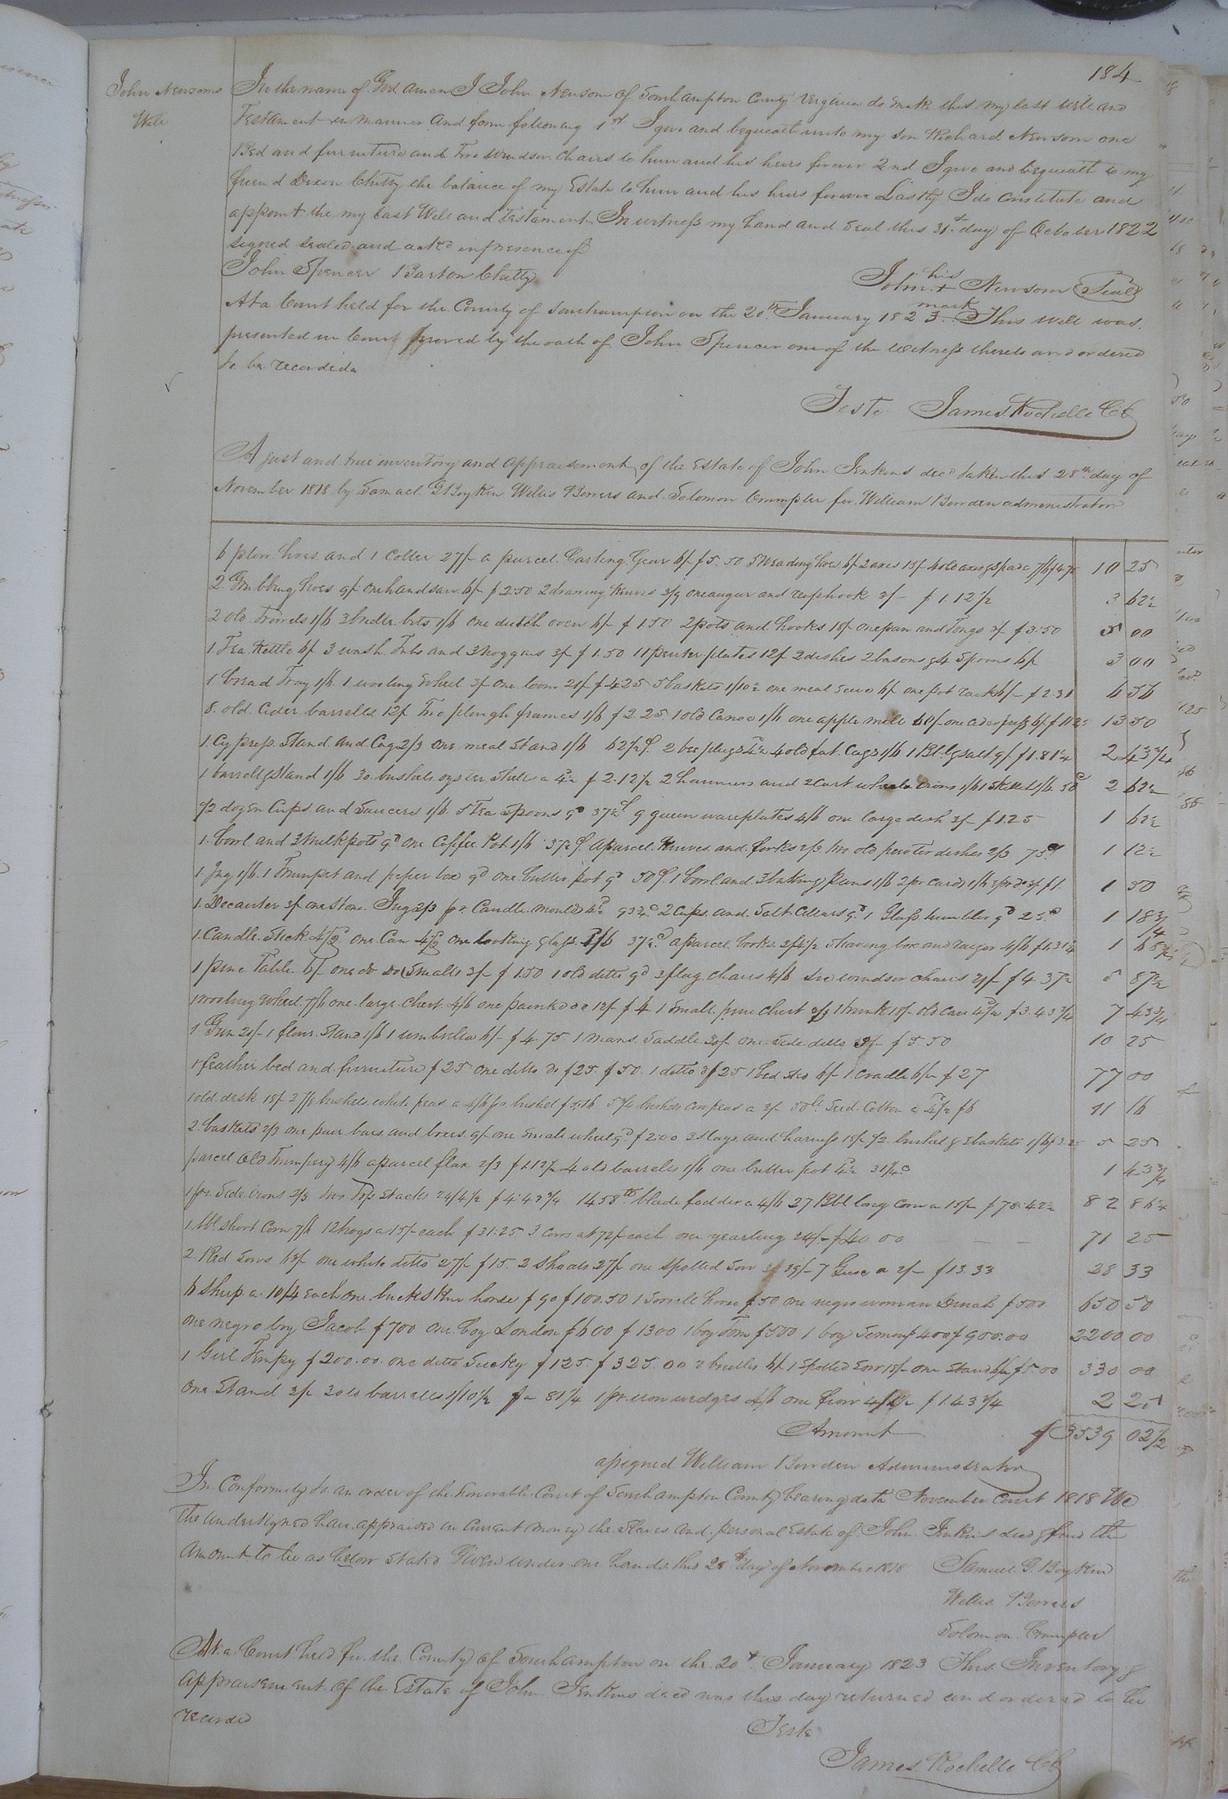 184
John Newsoms
Will
In the name of God amen I John Newsom of Southampton County Virginia do make this my last will and
Testament in manner and form following 1st I give and bequeath unto my son Richard Newsom one
Bed and furniture and two windsor Chairs to him and his heirs forever 2nd I give and bequeath to my
friend Dixon Chitty the balance of my Estate to him and his heirs forever Lastly I do constitute and
appoint the my last Will and Testament In witness my hand and seal this 31st day of October 1822
signed sealed and ackd in presence of
John Spencer Barton Chitty
John his + mark Newsom (Seal)
At a Court held for the County of Southampton on the 20th January 1823. This will was
presented in Court proved by the oath of John Spencer one of the witness thereto and ordered
to be recorded
Teste James Rochelle CC
A just and true inventory and appraisement of the Estate of John Jenkins decd taken this 28th day of
November 1818 by Samuel G Boykin Willis Bowers and Solomon Crumpler for William Bowden administrator
6 plow hoes and 1 Colter 27/- a parcel Carting Gear 6/- $5.50 5 Weading hoes 6/ 2 axes 15/ 10 25
2 Grubbing hoes 9/- one hand saw 6/- $2.50 2 drawing knives 3/9 one auger and reaphook 3/- $1.12½ 3 62½
2 old Trowels 1/6 3 bridle bits 1/6 one dutch oven 6/- $1.50 2 pots and hooks 15/- one pan and Tongs 3/ $3.50 5 00
1 Tea Kettle 6/ 3 wash Tubs and 3 noggins 3/ $1.50 11 pewter plates 12/ 2 dishes 2 basons & 4 Spoons 6/- 3 00
1 bread Tray 1/6 1 wooling wheel 3/ one loom 21/- $4.25 5 baskets 1/10½ one meal Seive 6/ one pot rack 6/- $2.31 6 56
8 old Cider barrells 12/ Two plough frames 1/6 $2.25 1 old Canoe 1/6 one apple mill one cider press 6/ 13 50
1 Cyprep Stand and Cag 2/3 one meal Stand 1/6 62½ 4 old fat Cags 1/6 1 Bbl & salt 9/ $1.81¼ 2 43¾
1 barrell & Stand 1/6 30 bushels oyster shells a 4½ $2.12½ 2 hammers and 2 Cart wheels irons 1/6 2 62½
½ dozen Cups and Saucers 1/6 5 Tea Spoons 9d 37½ 9 queen ware plates 4/6 one large dish 3/- $1.25 1 62½
1 bowl and 3 milk pots 9d one Coffee Pot 1/6 37½ a parcel Knives and forks 2/3 two old pewter dishes 2/3 75 1 12½
1 Jug 1/6 1 Trumpet and peper box 9d one butter pot 9d 50 1 bowl and 3 1 50
1 Decanter 3/ one Stone Jug 2/3 pr Candle moulds 2 Cups and Salt Cellars 9d 1 Glass tumbler 9d 25 1 18¾
1 Candle Stick 4½ one Can 4½ one looking glass 1/6 37½ a parcel books shaving box and razor 4/6 $1.31¼ 1 68¾
1 pine Table 6/ one do Do Smalls 3/- $1.50 1 old ditto 9d 3 flag chairs 4/6 six windsor chairs 21/- $4.37½ 5 87½
1 wooling wheel 7/6 one large Chest 4/6 one painted do 12/ $4 1 Small pine Chest 1 trunk 15/ old Case $3.43¾ 7 43¾
1 Gun 21/- 1 flour Stand 1/6 1 umbrilla 6/- $4.75 1 mans Saddle 30/- one Side ditto 3/- $5.50 10 25
1 feather bed and furniture $25 one ditto Do $25 $50 1 ditto Do $25 1 bed sted 6/- 1 Cradle 6/- $27 77 00
1 old desk 15/ bushels white peas a 4/6 pr bushel bushels Cow peas a 3/ Seed Cotton a 4½ $6 11 16
2 baskets 2/3 one pair bars and boxes 9/ one Small wheel 9d $2.00 3 Slays and harness 15/- ½ bushel & 3 baskets 1/6 5 25
parcel Old Trumpery 4/6 a parcel flax 2/3 $1.12½ 4 old barrells 1/6 one butter pot 4½ 31¼ 1 43¾
1 pr Side irons 2/3 two Top Stacks 24/4½ $4.43¾ 1458 lb blade fodder a 4/6 27 Bbl long Corn a 15/- $78.42½ 82 86¼
1 bbl Short Corn 7/6 12 hogs a 15/- each $31.25 3 Cows at 72/ each one yearling 24/- $40.00 71 25
2 Red Sows 63/ one white ditto 27/- $15. 2 Shoats 27/ one Spotted Sow 39/- 7 Geese a 2/- $13.33 28 33
6 Sheep a 10/6 Each one buckskin horse $90 $100.50 1 Sorrell horse $50 one negro woman Dinah $500 650 50
One negro boy Jacob $700 one boy London $600 $1300 1 boy Tom $500 1 boy $400 $900.00 2200 00
1 Girl $200.00 one ditto Sucky $125 $325.00 2 6/ 1 Spotted Sow 15/- one Stand $5.00 330 00
One Stand 3/- 3 old barrells 1/10½ 81¼ 1 pr iron wedges 4/6 one 4/1½ $1.43¾ 2 25
Amount $3539 02½
asigned William Bowden Administrator
In Conformity to an order of the honorable Court of Southampton County bearing date November Court 1818 We
The undersigned have appraised in Current money the slaves and personal Estate of John Jenkins decd & find the
amount to be as below stated Given under our hands this 28th day of November 1818 Samuel G. Boykin
Willis Bowers
Solomon Crumpler
At a Court held for the County of Southampton on the 20th January 1823 This Inventory &
appraisement of the Estate of John Jenkins decd was this day returned and ordered to be
recorded
Teste
James Rochelle CC